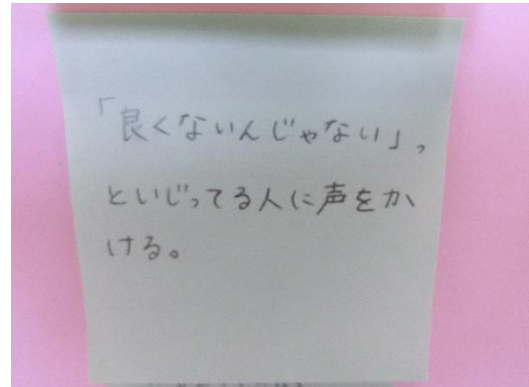 「良くないんじゃない」,
といじってる人に声をか
ける。